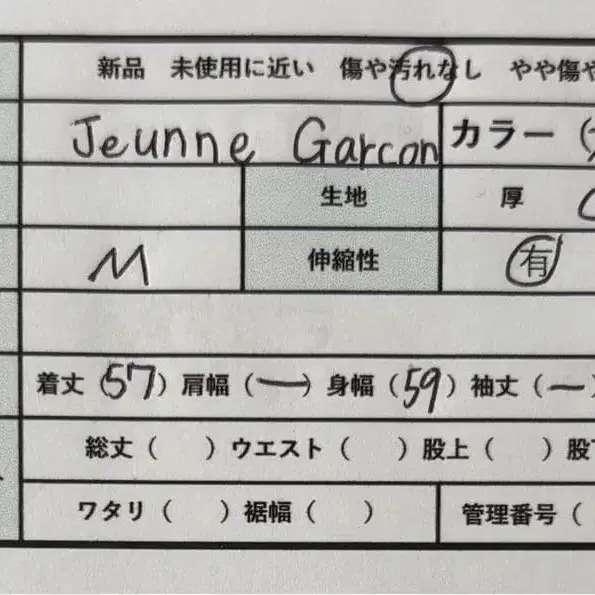 新品 未使用に近い 傷や汚れなし やや傷や
Jeunne Garcon カラー (
生地 厚
M 伸縮性 有
着丈 (57) 肩幅 (ー) 身幅 (59) 袖丈 (ー)
総丈 ( ) ウエスト ( ) 股上 ( ) 股下
ワタリ ( ) 裾幅 ( ) 管理番号 (